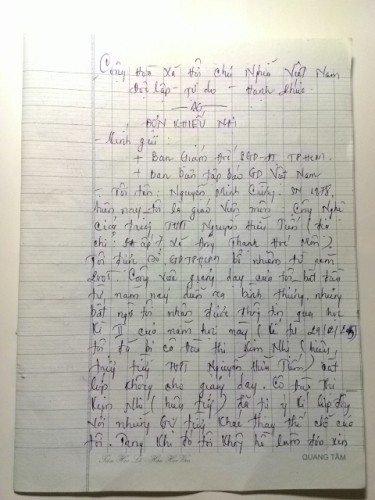 Cộng Hòa Xã Hội Chủ Nghĩa Việt Nam
Độc lập - Tự do - Hạnh phúc
ĐƠN KHIẾU NẠI
- Kính gửi :
+ Ban Giám Đốc SGD-ĐT TPHCM.
+ Ban biên tập báo GD Việt Nam
- Tôi tên : Nguyễn Minh Cường : SN 1978,
hiện nay tôi là giáo viên môn : Công Nghệ
của trường THPT Nguyễn Hữu Tiến (địa
chỉ : ấp 7 Xã Đông Thạnh Hóc Môn).
Tôi được Sở GDTPHCM bổ nhiệm từ năm
2005. Công việc giảng dạy của tôi bắt đầu
từ năm này diễn ra bình thường, nhưng
bất ngờ tôi nhận được thông tin qua học
kì II của năm học này (kể từ
tôi đã bị cô Thị Kim Nhi (hiệu
trưởng trường THPT Nguyễn Hữu Tiến) cắt
lớp không cho giảng dạy. Cô Thị
Kim Nhi (hiệu trưởng) đã tự ý kí hợp đồng
với những GV trường khác thay thế chỗ của
tôi. Trong khi đó tôi không hề làm đơn xin
QUANG TÂM